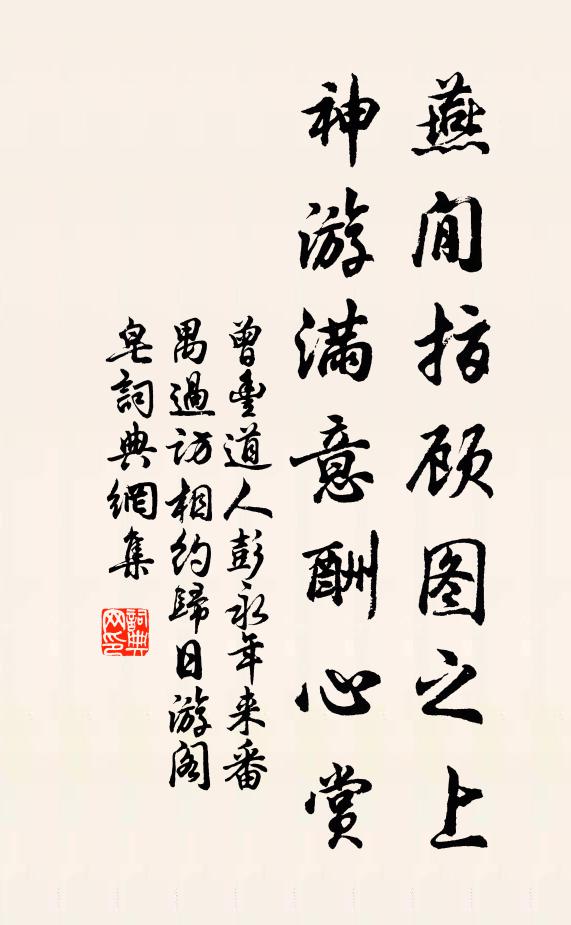 燕閒指顾图之上
神游满意酬心赏
曾丰道人彭永年来番
禺過訪相约歸日游阁
皂詞典網集
詞典网印